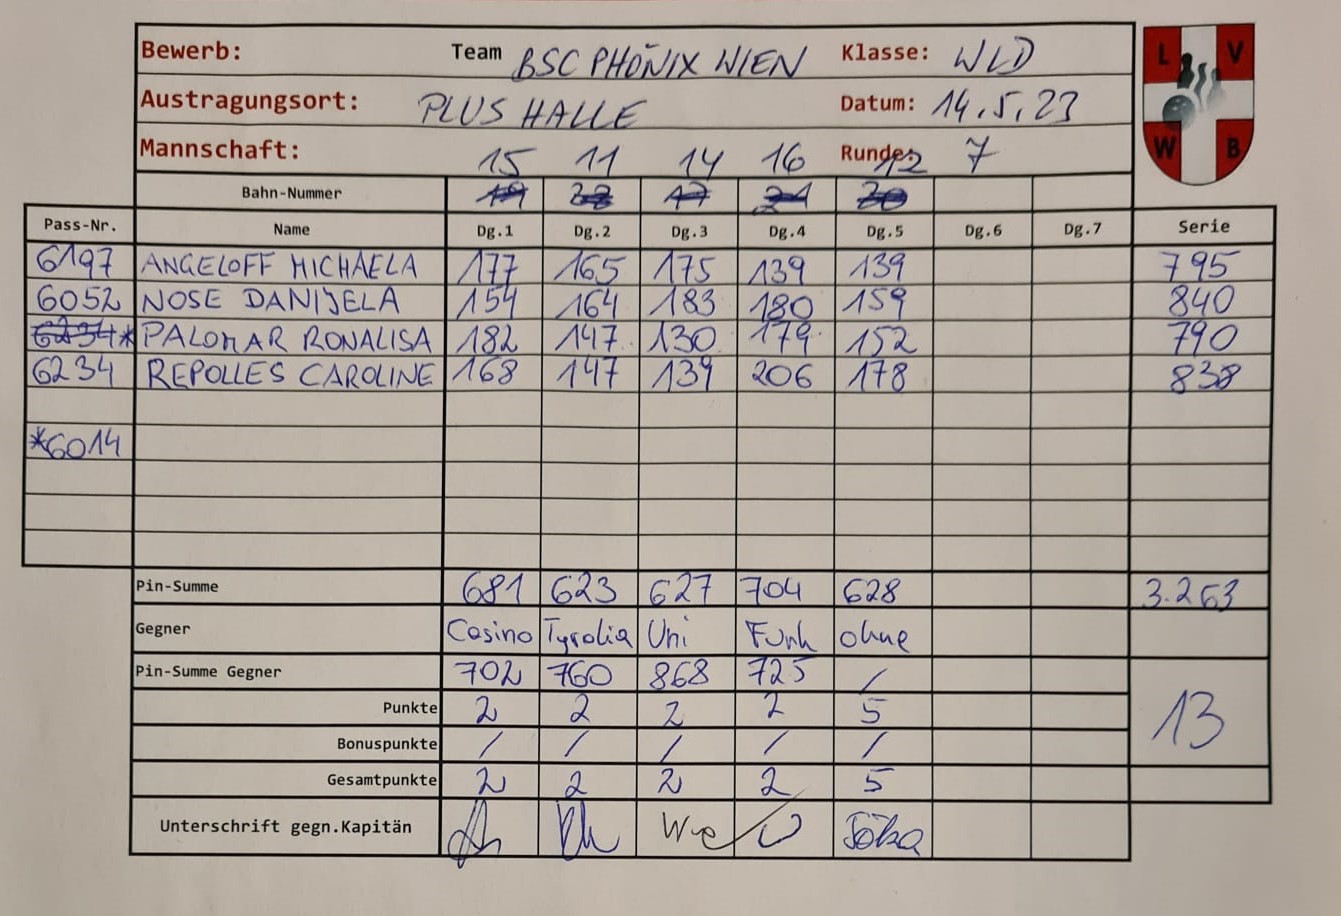 Bewerb: Team BSC PHÖNIX WIEN Klasse: WLD
Austragungsort: PLUS HALLE Datum: 14.5.23
Mannschaft: 15 11 14 16 12 Runde: 7
Bahn-Nummer
Pass-Nr. Name Dg.1 Dg.2 Dg.3 Dg.4 Dg.5 Dg.6 Dg.7 Serie
6197 ANGELOFF MICHAELA 177 165 175 139 139 795
6052 NOSE DANIJELA 154 164 183 180 159 840
6234* PALOMAR RONALISA 182 147 130 179 152 790
6234 REPOLLES CAROLINE 168 147 139 206 178 838
*6014
Pin-Summe 681 623 627 704 628 3.263
Gegner Casino Tyrolia Uni Funk ohne
Pin-Summe Gegner 702 760 868 725 /
Punkte 2 2 2 2 5 13
Bonuspunkte / / / / /
Gesamtpunkte 2 2 2 2 5
Unterschrift gegn.Kapitän
L V
W B